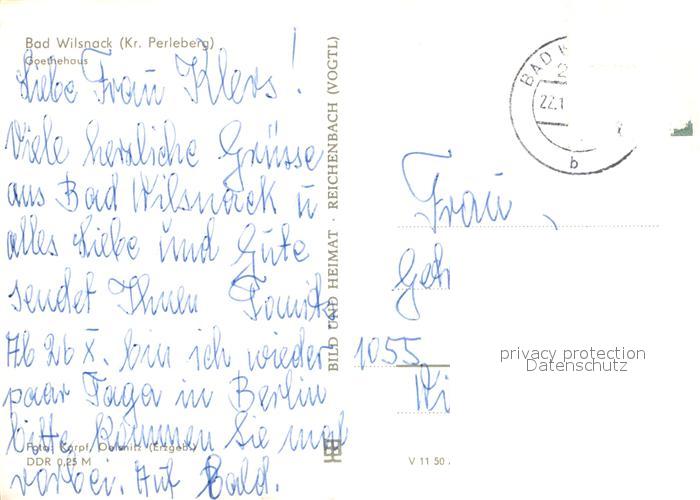 Bad Wilsnack (Kr. Perleberg)
Goethehaus
Liebe Frau Klers!
Viele herzliche Grüsse
aus Bad Wilsnack u
alles Liebe und Gute
sendet Ihnen
Ab 26 X. bin ich wieder
paar Tage in Berlin
bitte kommen Sie mal
vorbei. Auf Bald.
Foto: Karpf, Oelsnitz (Erzgeb.)
DDR 0,25 M
BILD UND HEIMAT · REICHENBACH (VOGTL)
BAD
22.1
b
Frau
1055
Wi
V 11 50
privacy protection
Datenschutz